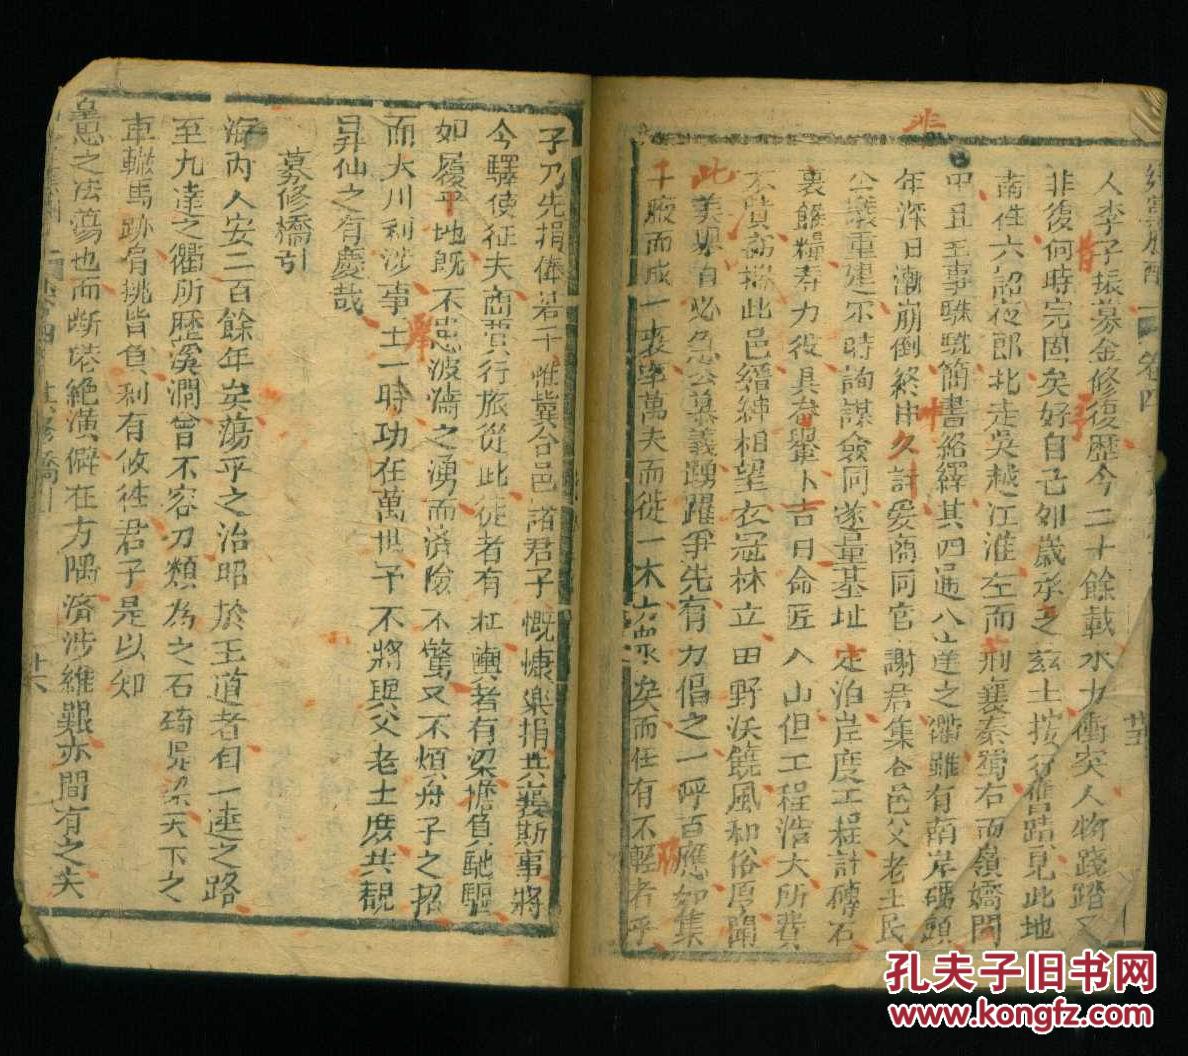 人李子振募金修復歷今二十餘載水力衝突人物踐踏又
非復何時完固矣好自己卯歲承乏茲土按行舊蹟見此地
南往六詔夜郎北走吳越江淮左而荆襄秦蜀右而嶺嶠閩
中且王事驍駪簡書絡繹其四通八達之衢雖有南岸碼頭
年深日漸崩倒終非久計爰商同官謝君集合邑父老士民
公議重建不時詢謀僉同遂量基址定泊岸度工程計磚石
裹餱糧壽力役具畚轝卜吉日命匠入山但工程浩大所費
不貲部指此邑縉紳相望衣冠林立田野沃饒風和俗厚聞
此美舉自必急公慕義踴躍爭先有力倡之一呼百應如集
千腋而成一裘率萬夫而徙一木衆矣而任有不輕者乎
子乃先捐俸若干惟冀合邑諸君子慨慷樂捐共襄斯事將
今驛使征夫商賈行旅從此徒者有杠輿者有梁擔負馳驅
如履平地既不患波濤之湧而濟險不驚又不煩舟子之招
而大川利涉事士一時功在萬世予不將與父老士庶共覩
昇仙之有慶哉
募修橋引
海內人安二百餘年矣蕩平之治昭於王道者自一達之路
至九達之衢所歷溪澗曾不容刀類為之石琦晃梁天下之
車轍馬跡肩挑皆負利有攸往君子是以知
皇恩之浩蕩也而斷港絕潢僻在方隅濟涉維艱亦間有之矣
卷四
十六
孔夫子旧书网
www.kongfz.com